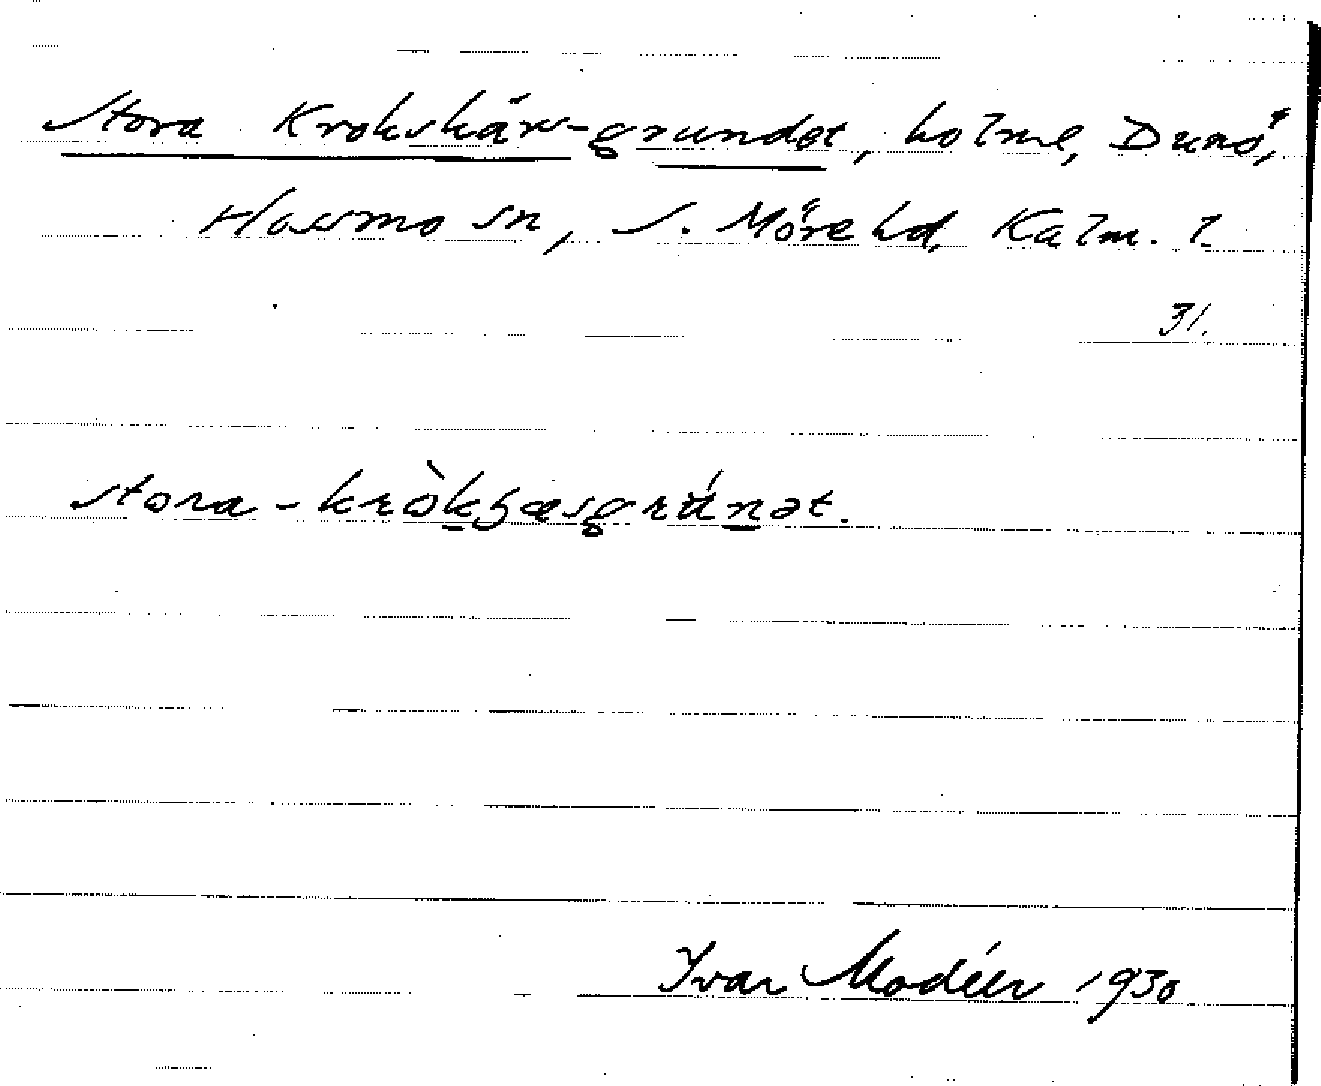 Stora Krokskärs-grundet, holme, Dunö,
Hossmo sn, S. Möre hd, Kalm. l.
31.
stora-
Ivar Modéer 1930